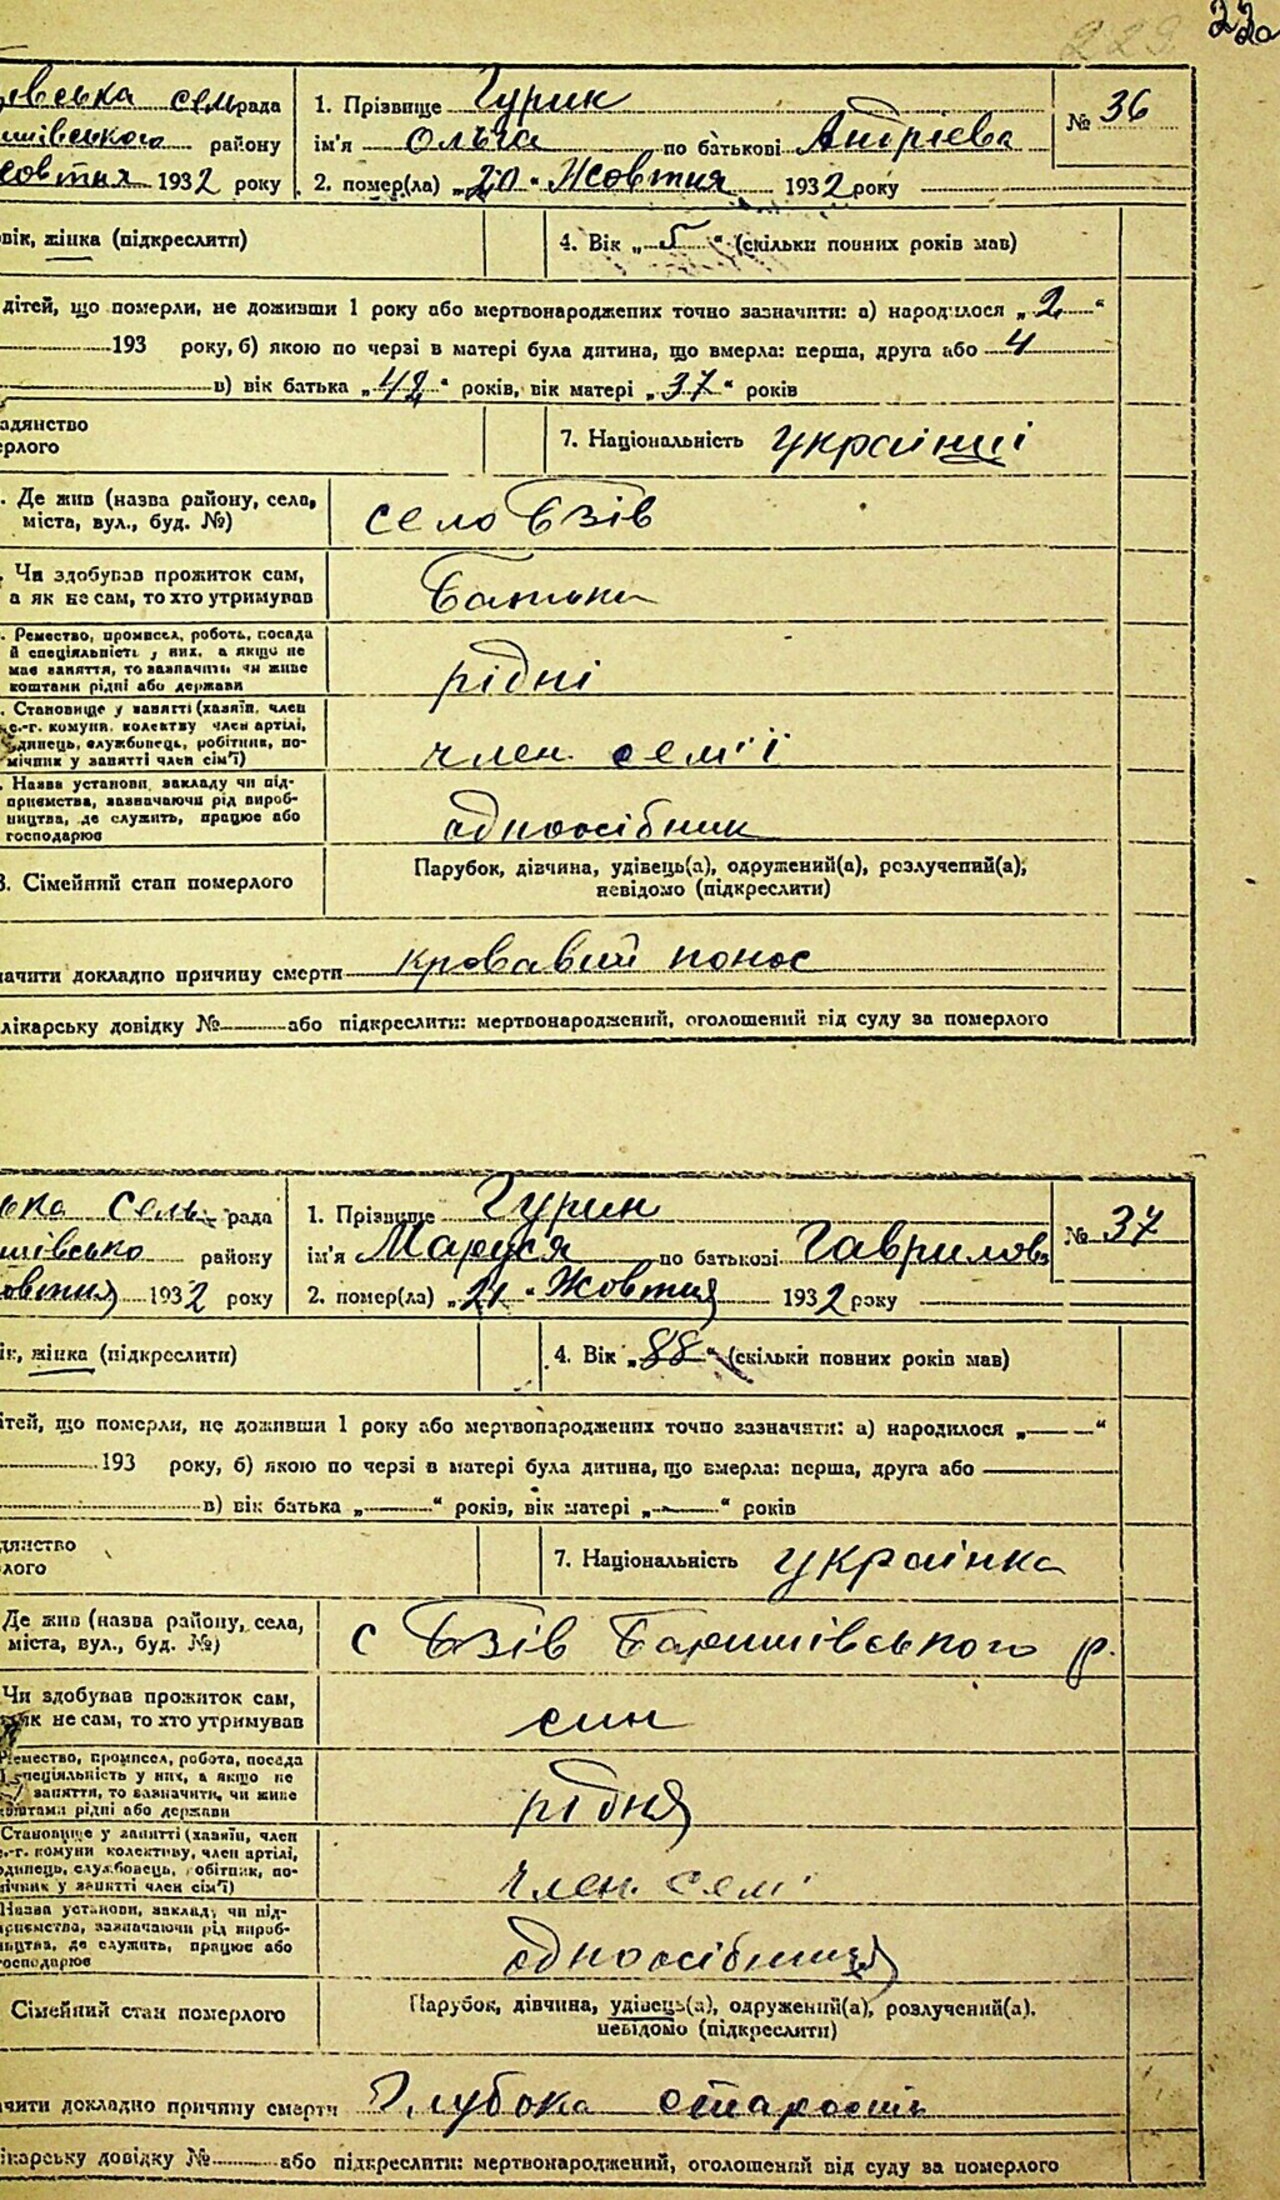 229 22а
евська сельрада 1. Прізвище Гурик № 36
ишівського району ім'я Ольга по батькові Андрієва
совтня 1932 року 2. помер(ла) „20“ Жовтня 1932 року
овік, жінка (підкреслити) 4. Вік „5“ (скільки повних років мав)
дітей, що померли, не доживши 1 року або мертвонароджених точно зазначити: а) народилося „2“
193 року, б) якою по черзі в матері була дитина, що вмерла: перша, друга або 4
в) вік батька „42“ років, вік матері „37“ років
адянство
ерлого 7. Національність україн
. Де жив (назва району, села,
міста, вул., буд. №) село Бзів
. Чи здобував прожиток сам,
а як не сам, то хто утримував Батьки
. Ремество, промисел, робота, посада
й спеціяльність у них, а якщо не
має заняття, то зазначити чи живе
коштами рідні або держави рідні
. Становище у занятті (хазяїн, член
с.-г. комуни, колективу член артілі,
одинець, службовець, робітник, по-
мічник у занятті член сім'ї) член сем'ї
. Назва установи, закладу чи під-
приємства, зазначаючи рід вироб-
ництва, де служить, працює або
господарює одноосібник
3. Сімейний стан померлого Парубок, дівчина, удівець(а), одружений(а), розлучений(а),
невідомо (підкреслити)
начити докладно причину смерти кровавий понос
лікарську довідку № або підкреслити: мертвонароджений, оголошений від суду за померлого
ька сель рада 1. Прізвище Гурин № 37
ишівсько району ім'я Маруся по батькові Гаврилова
овтня 1932 року 2. помер(ла) „21“ Жовтня 1932 року
ік, жінка (підкреслити) 4. Вік „88“ (скільки повних років мав)
ітей, що померли, не доживши 1 року або мертвонароджених точно зазначити: а) народилося „— —“
193 року, б) якою по черзі в матері була дитина, що вмерла: перша, друга або —
в) вік батька „—“ років, вік матері „—“ років
дянство
лого 7. Національність українка
Де жив (назва району, села,
міста, вул., буд. №) с Бзів Баришівського р.
Чи здобував прожиток сам,
як не сам, то хто утримував син
Ремество, промисел, робота, посада
спеціяльність у них, а якщо не
заняття, то зазначити, чи живе
коштами рідні або держави рідня
Становище у занятті (хазяїн, член
с.-г. комуни колективу, член артілі,
одинець, службовець, робітник, по-
мічник у занятті член сім'ї) член. семі
Назва установи, закладу чи під-
приємства, зазначаючи рід вироб-
ництва, де служить, працює або
господарює одноосібниця
Сімейний стан померлого Парубок, дівчина, удівець(а), одружений(а), розлучений(а).
невідомо (підкреслити)
ачити докладно причину смерти Глубока старость
ікарську довідку № або підкреслити: мертвонароджений, оголошений від суду за померлого